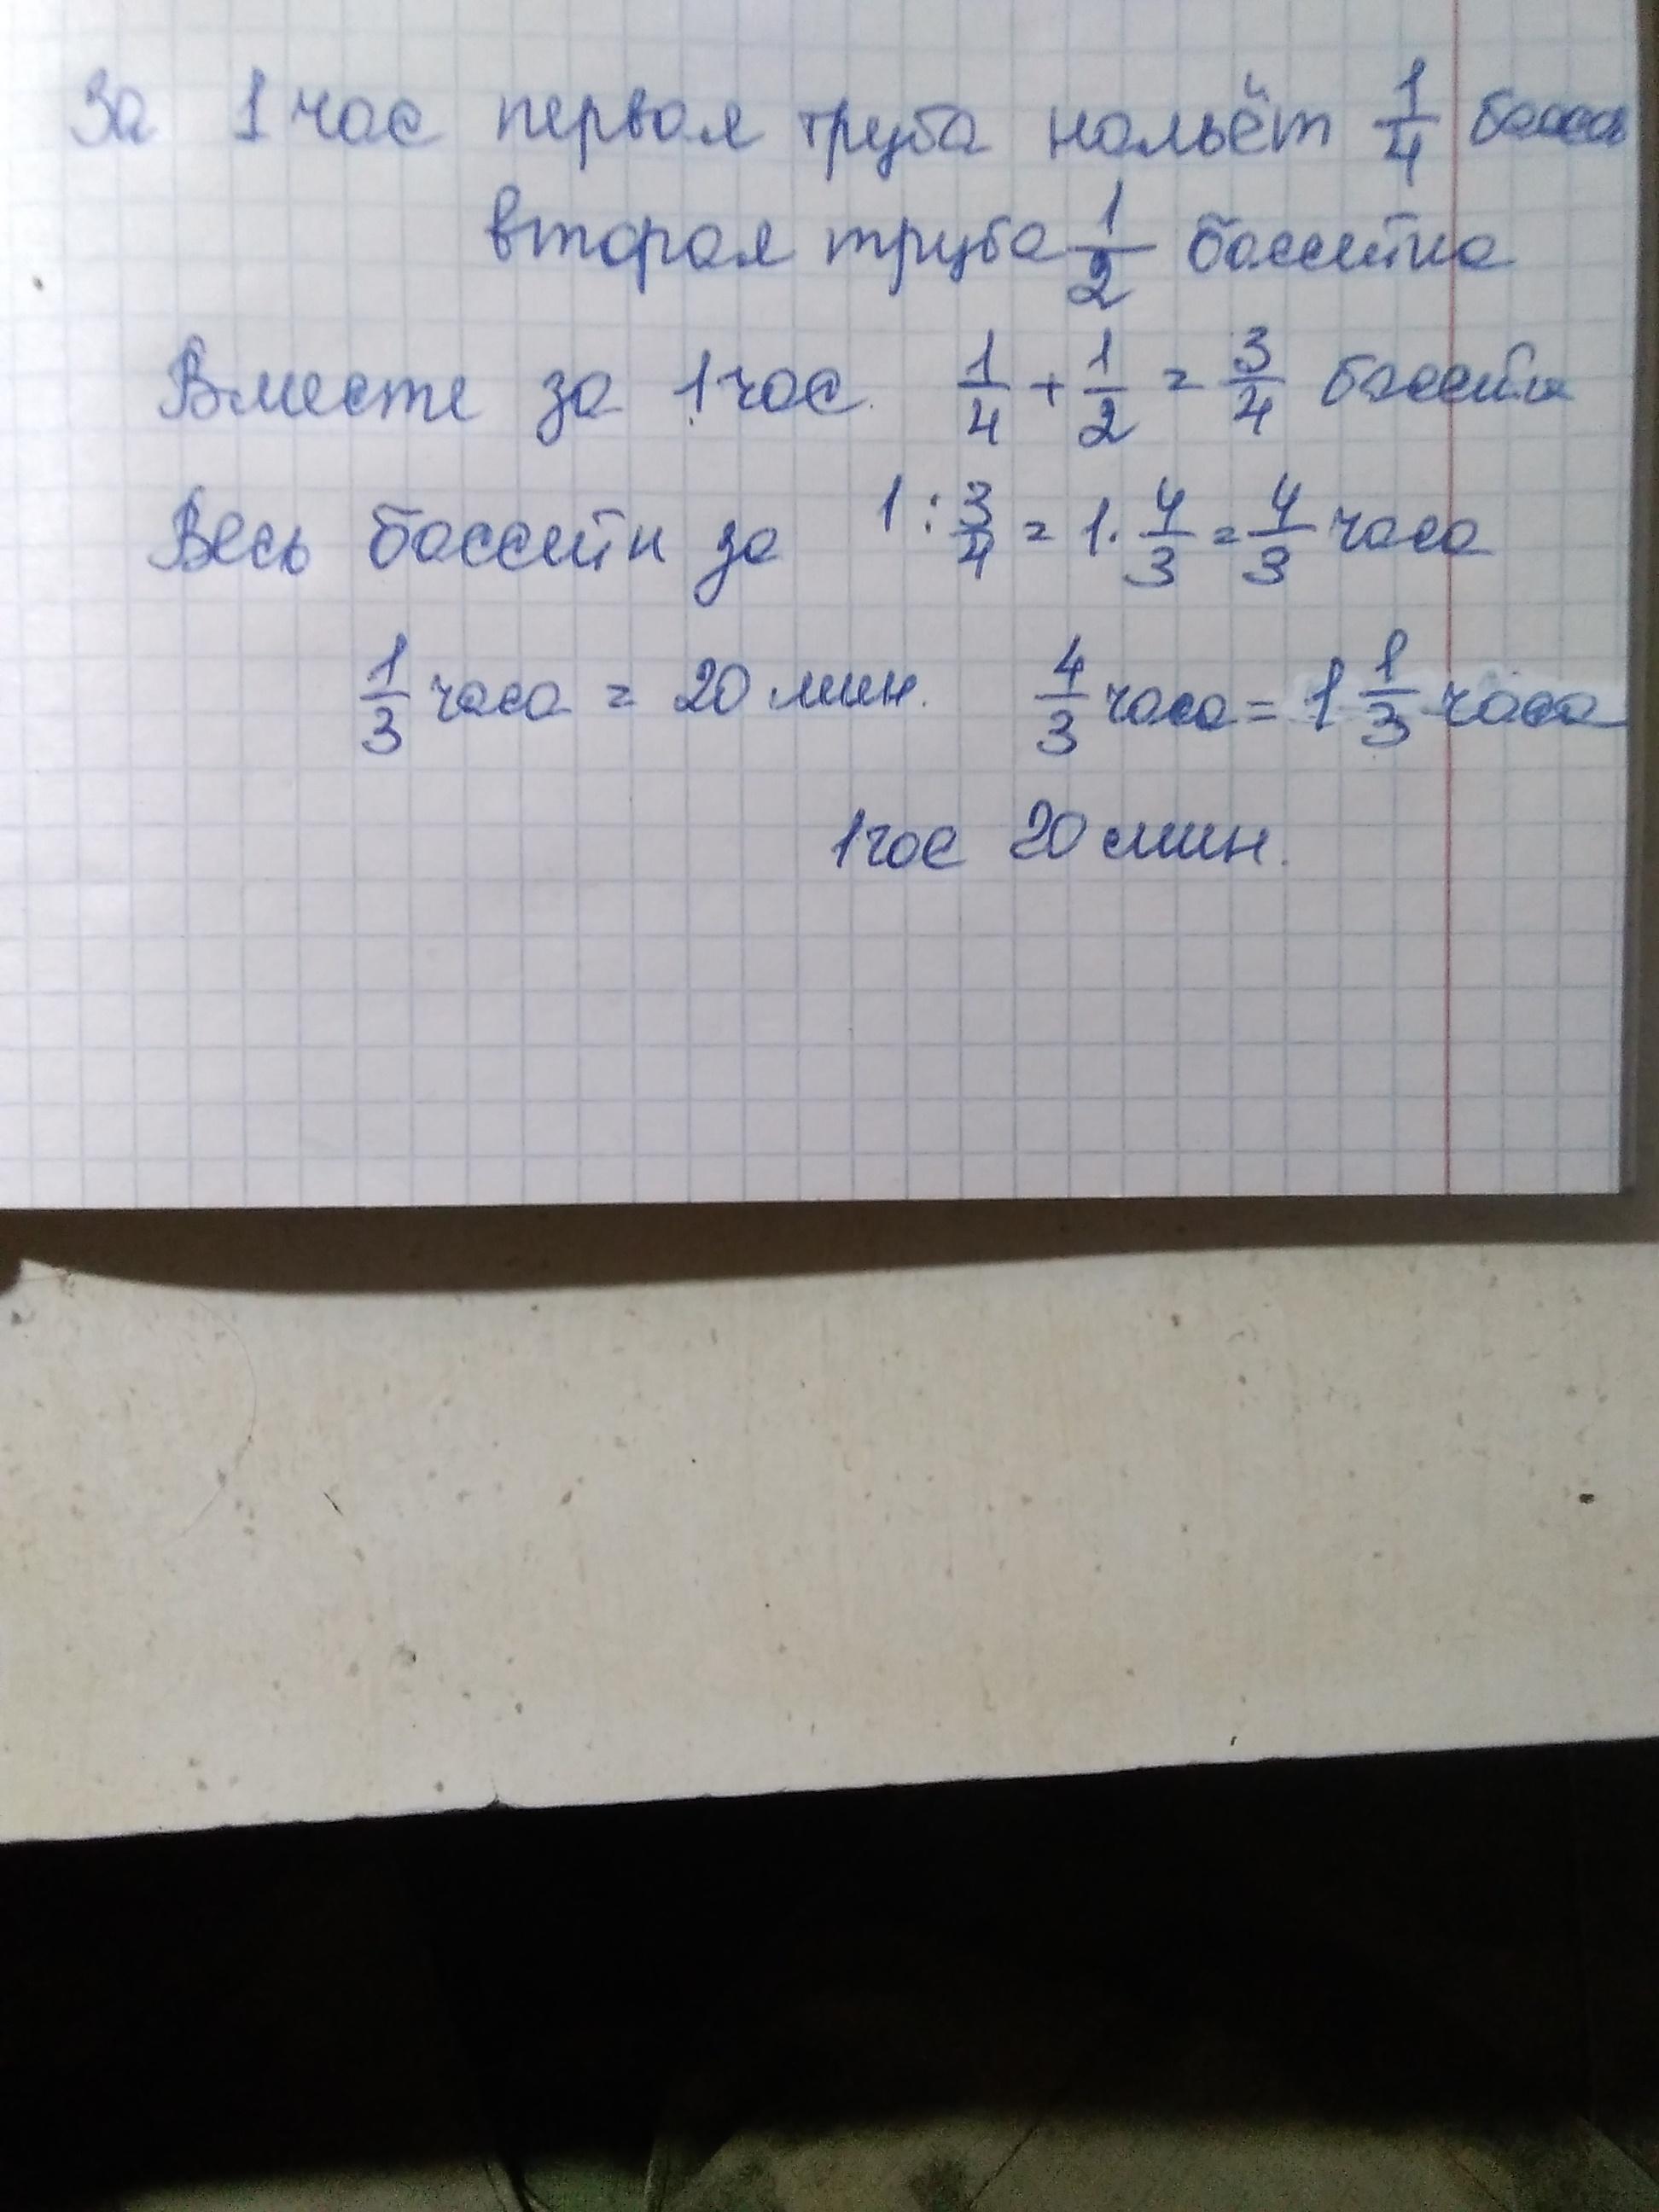 За 1 час первая труба нальёт 1/4 басса
вторая труба 1/2 бассейна
Вместе за 1 час. 1/4 + 1/2 = 3/4 бассейн
Весь бассейн за 1 : 3/4 = 1 · 4/3 = 4/3 часа
1/3 часа = 20 мин. 4/3 часа = 1 1/3 часа
1 час 20 мин.